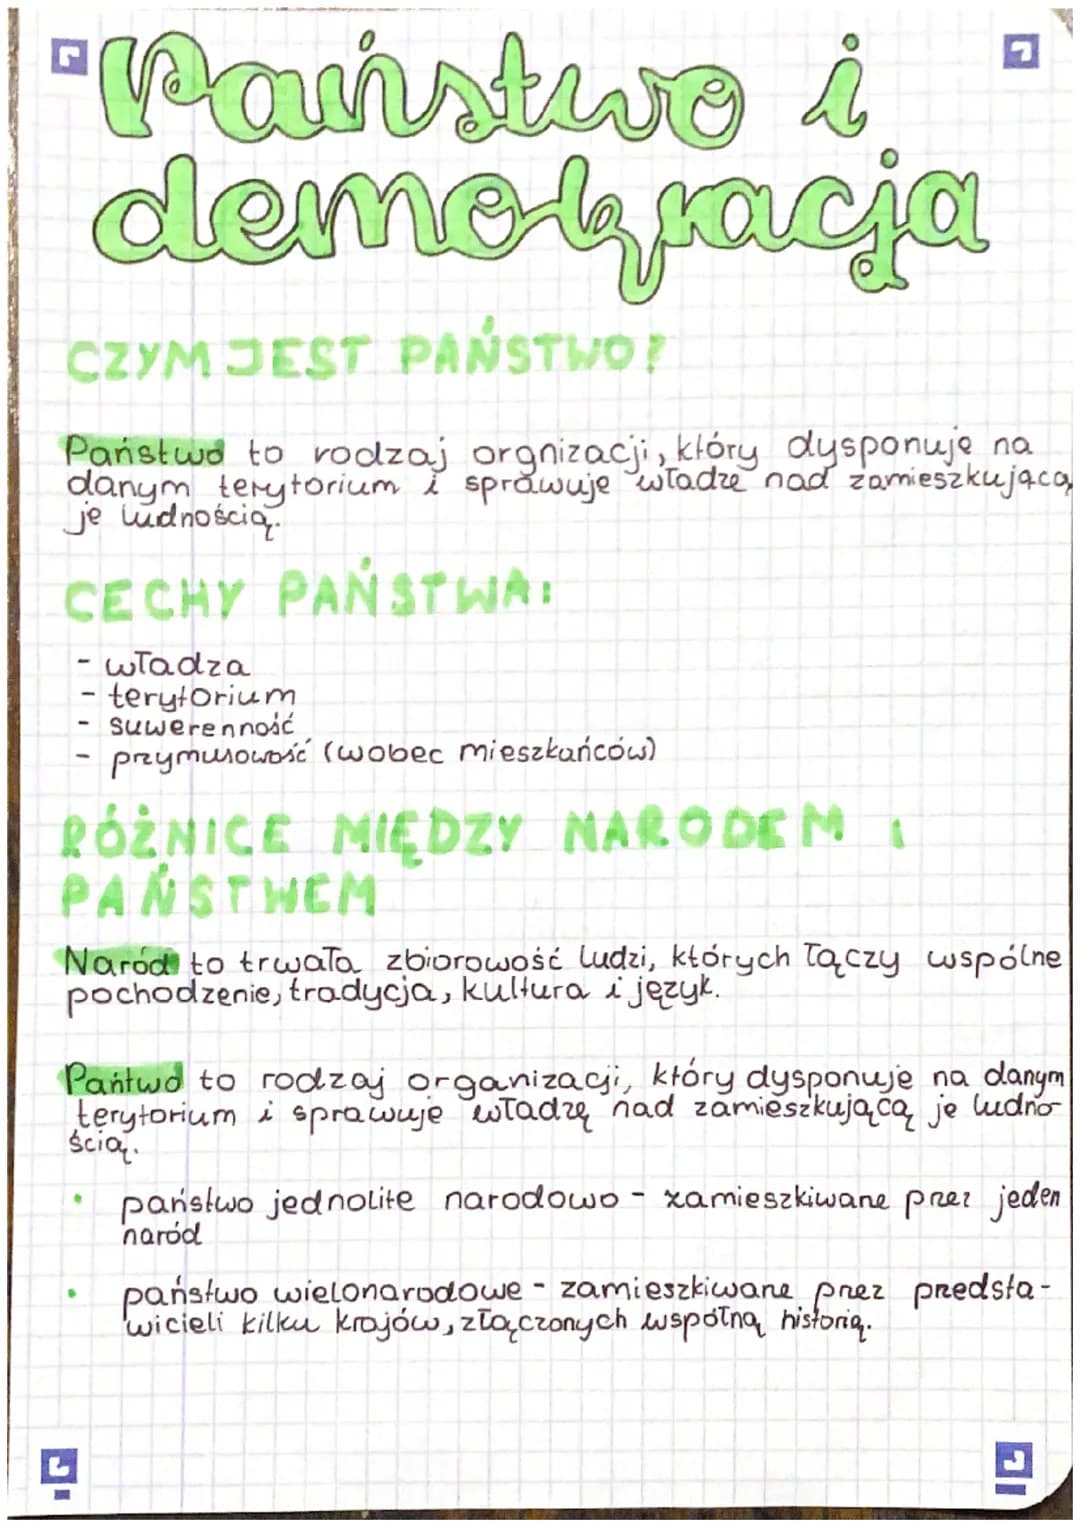 Państwo i
demokracja
CZYM JEST PAŃSTWO?
Państwo to rodzaj orgnizacji, który dysponuje na
danym terytorium i sprawuje władze nad zamieszkującą
je ludnością.
CECHY PAŃSTWA:
- władza
- terytorium
- suwerenność
- przymusowość (wobec mieszkańców)
RÓŻNICE MIĘDZY NARODEM I
PAŃSTWEM
Naród to trwała zbiorowość ludzi, których łączy wspólne
pochodzenie, tradycja, kultura i język.
Pańtwo to rodzaj organizacji, który dysponuje na danym
terytorium i sprawuje władzę nad zamieszkującą je ludno-
ścią.
• państwo jednolite narodowo - zamieszkiwane przez jeden
naród
• państwo wielonarodowe - zamieszkiwane przez przedsta-
wicieli kilku krajów, złączonych wspólną historią.